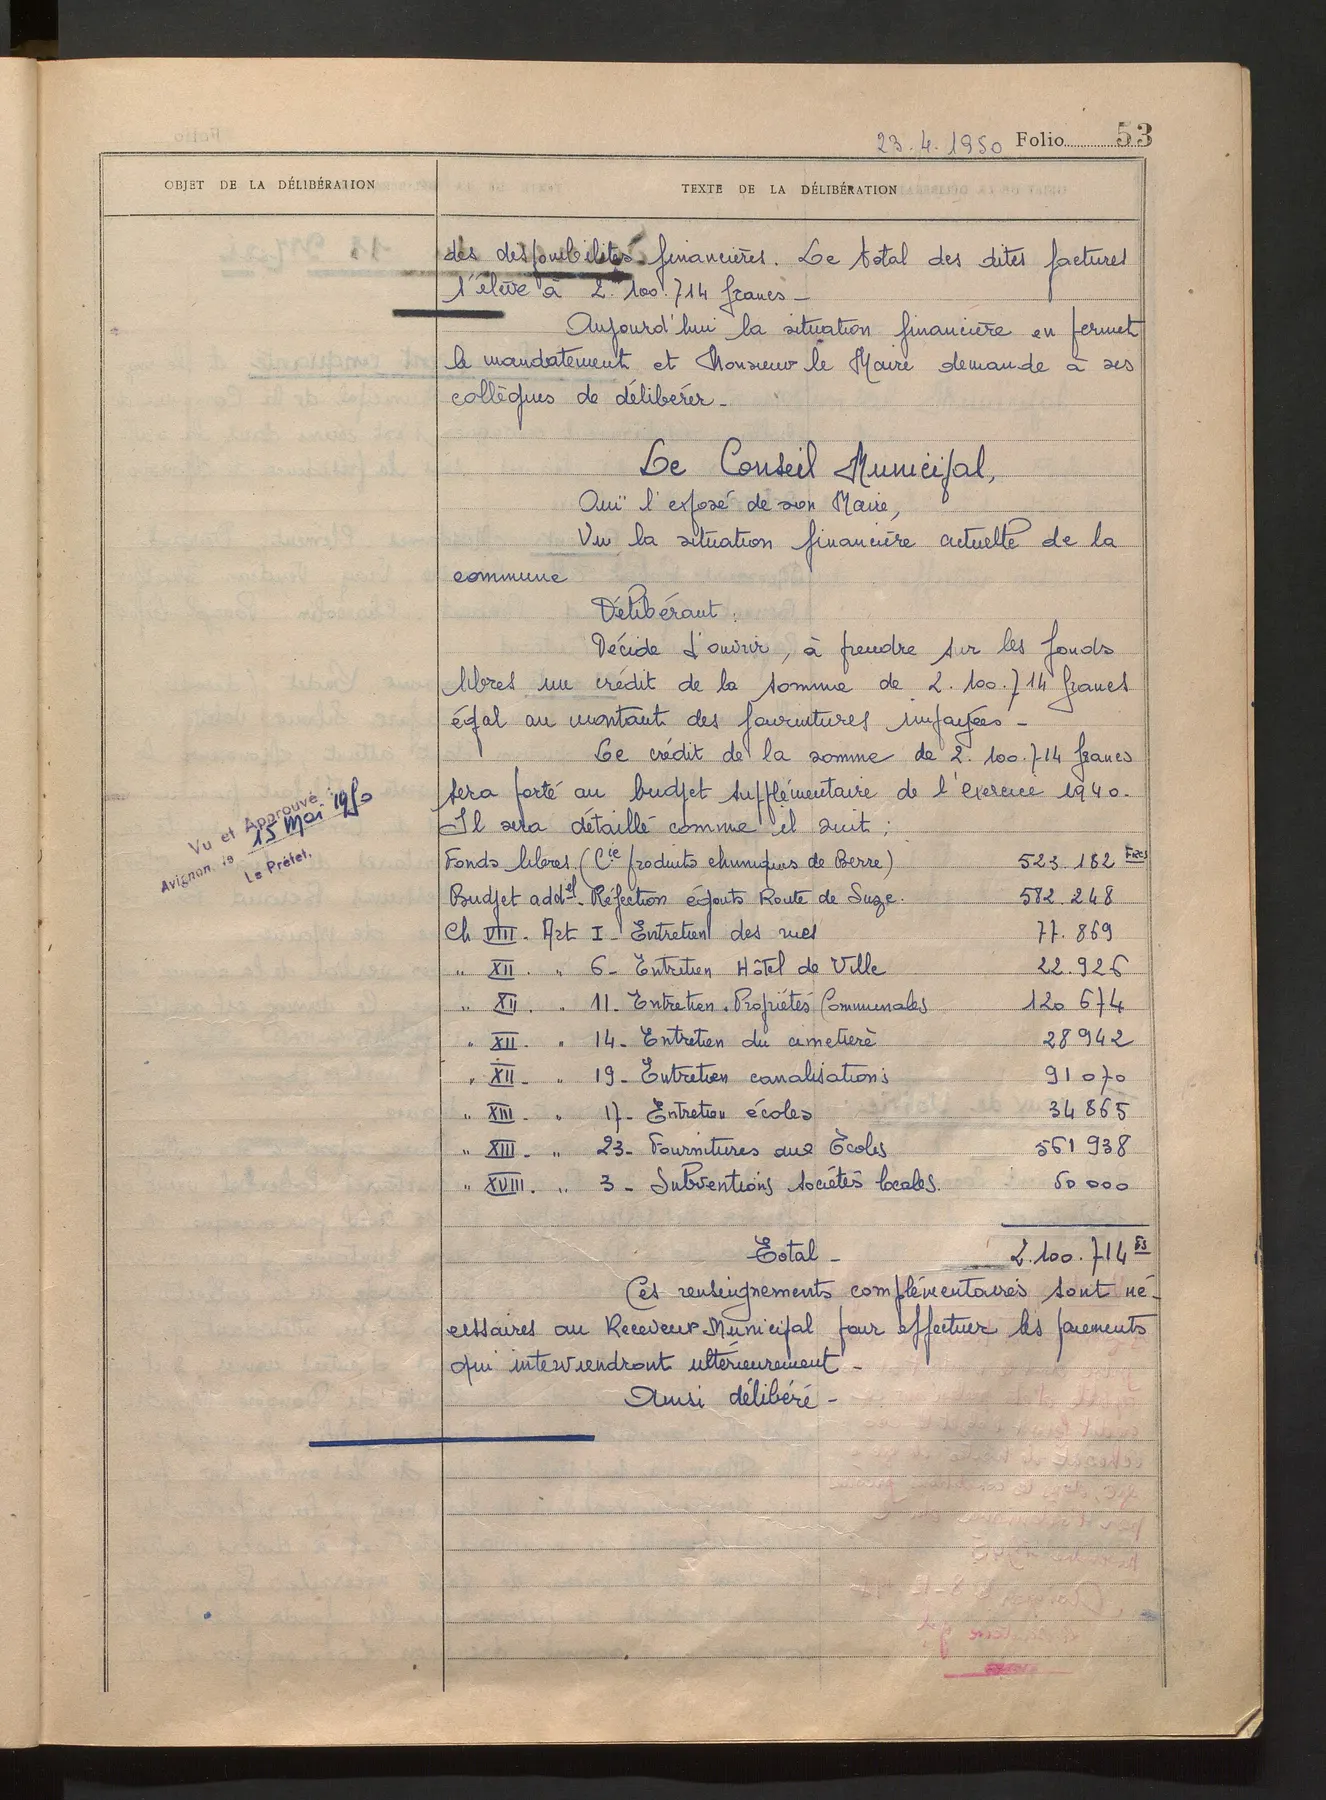 23.4.1950 Folio 53
OBJET DE LA DÉLIBÉRATION
TEXTE DE LA DÉLIBÉRATION
des disponibilités financières. Le total des dites factures
s'élève à 2.100.714 francs -
Aujourd'hui la situation financière en permet
le mandatement et Monsieur le Maire demande à ses
collègues de délibérer -
Le Conseil Municipal,
Ouï l'exposé de son Maire,
Vu la situation financière actuelle de la
commune
Délibérant :
Décide d'ouvrir, à prendre sur les fonds
libres un crédit de la somme de 2.100.714 francs
égal au montant des fournitures impayées -
Le crédit de la somme de 2.100.714 francs
sera porté au budget supplémentaire de l'exercice 1940.
Il sera détaillé comme il suit :
Vu et Approuvé :
Avignon, le 15 Mai 1950
Le Préfet,
Fonds libres. (Cie produits chimiques de Berre) 523.182 Frcs
Budget addel. Réfection égouts Route de Suze. 582.248
Ch VIII. Art I - Entretien des rues 77.869
" XII. " 6 - Entretien Hôtel de Ville 22.926
" XII. " 11. Entretien. Propriétés Communales 120 674
" XII. " 14 - Entretien du cimetière 28942
" XII. " 19 - Entretien canalisations 91070
" XIII " 17 - Entretien écoles 34865
" XIII. " 23 - Fournitures aux Ecoles 561938
" XVIII. " 3 - Subventions sociétés locales. 50000
Total - 2.100.714 Fs
Ces renseignements complémentaires sont né-
cessaires au Receveur Municipal pour effectuer les paiements
qui interviendront ultérieurement -
Ainsi délibéré -